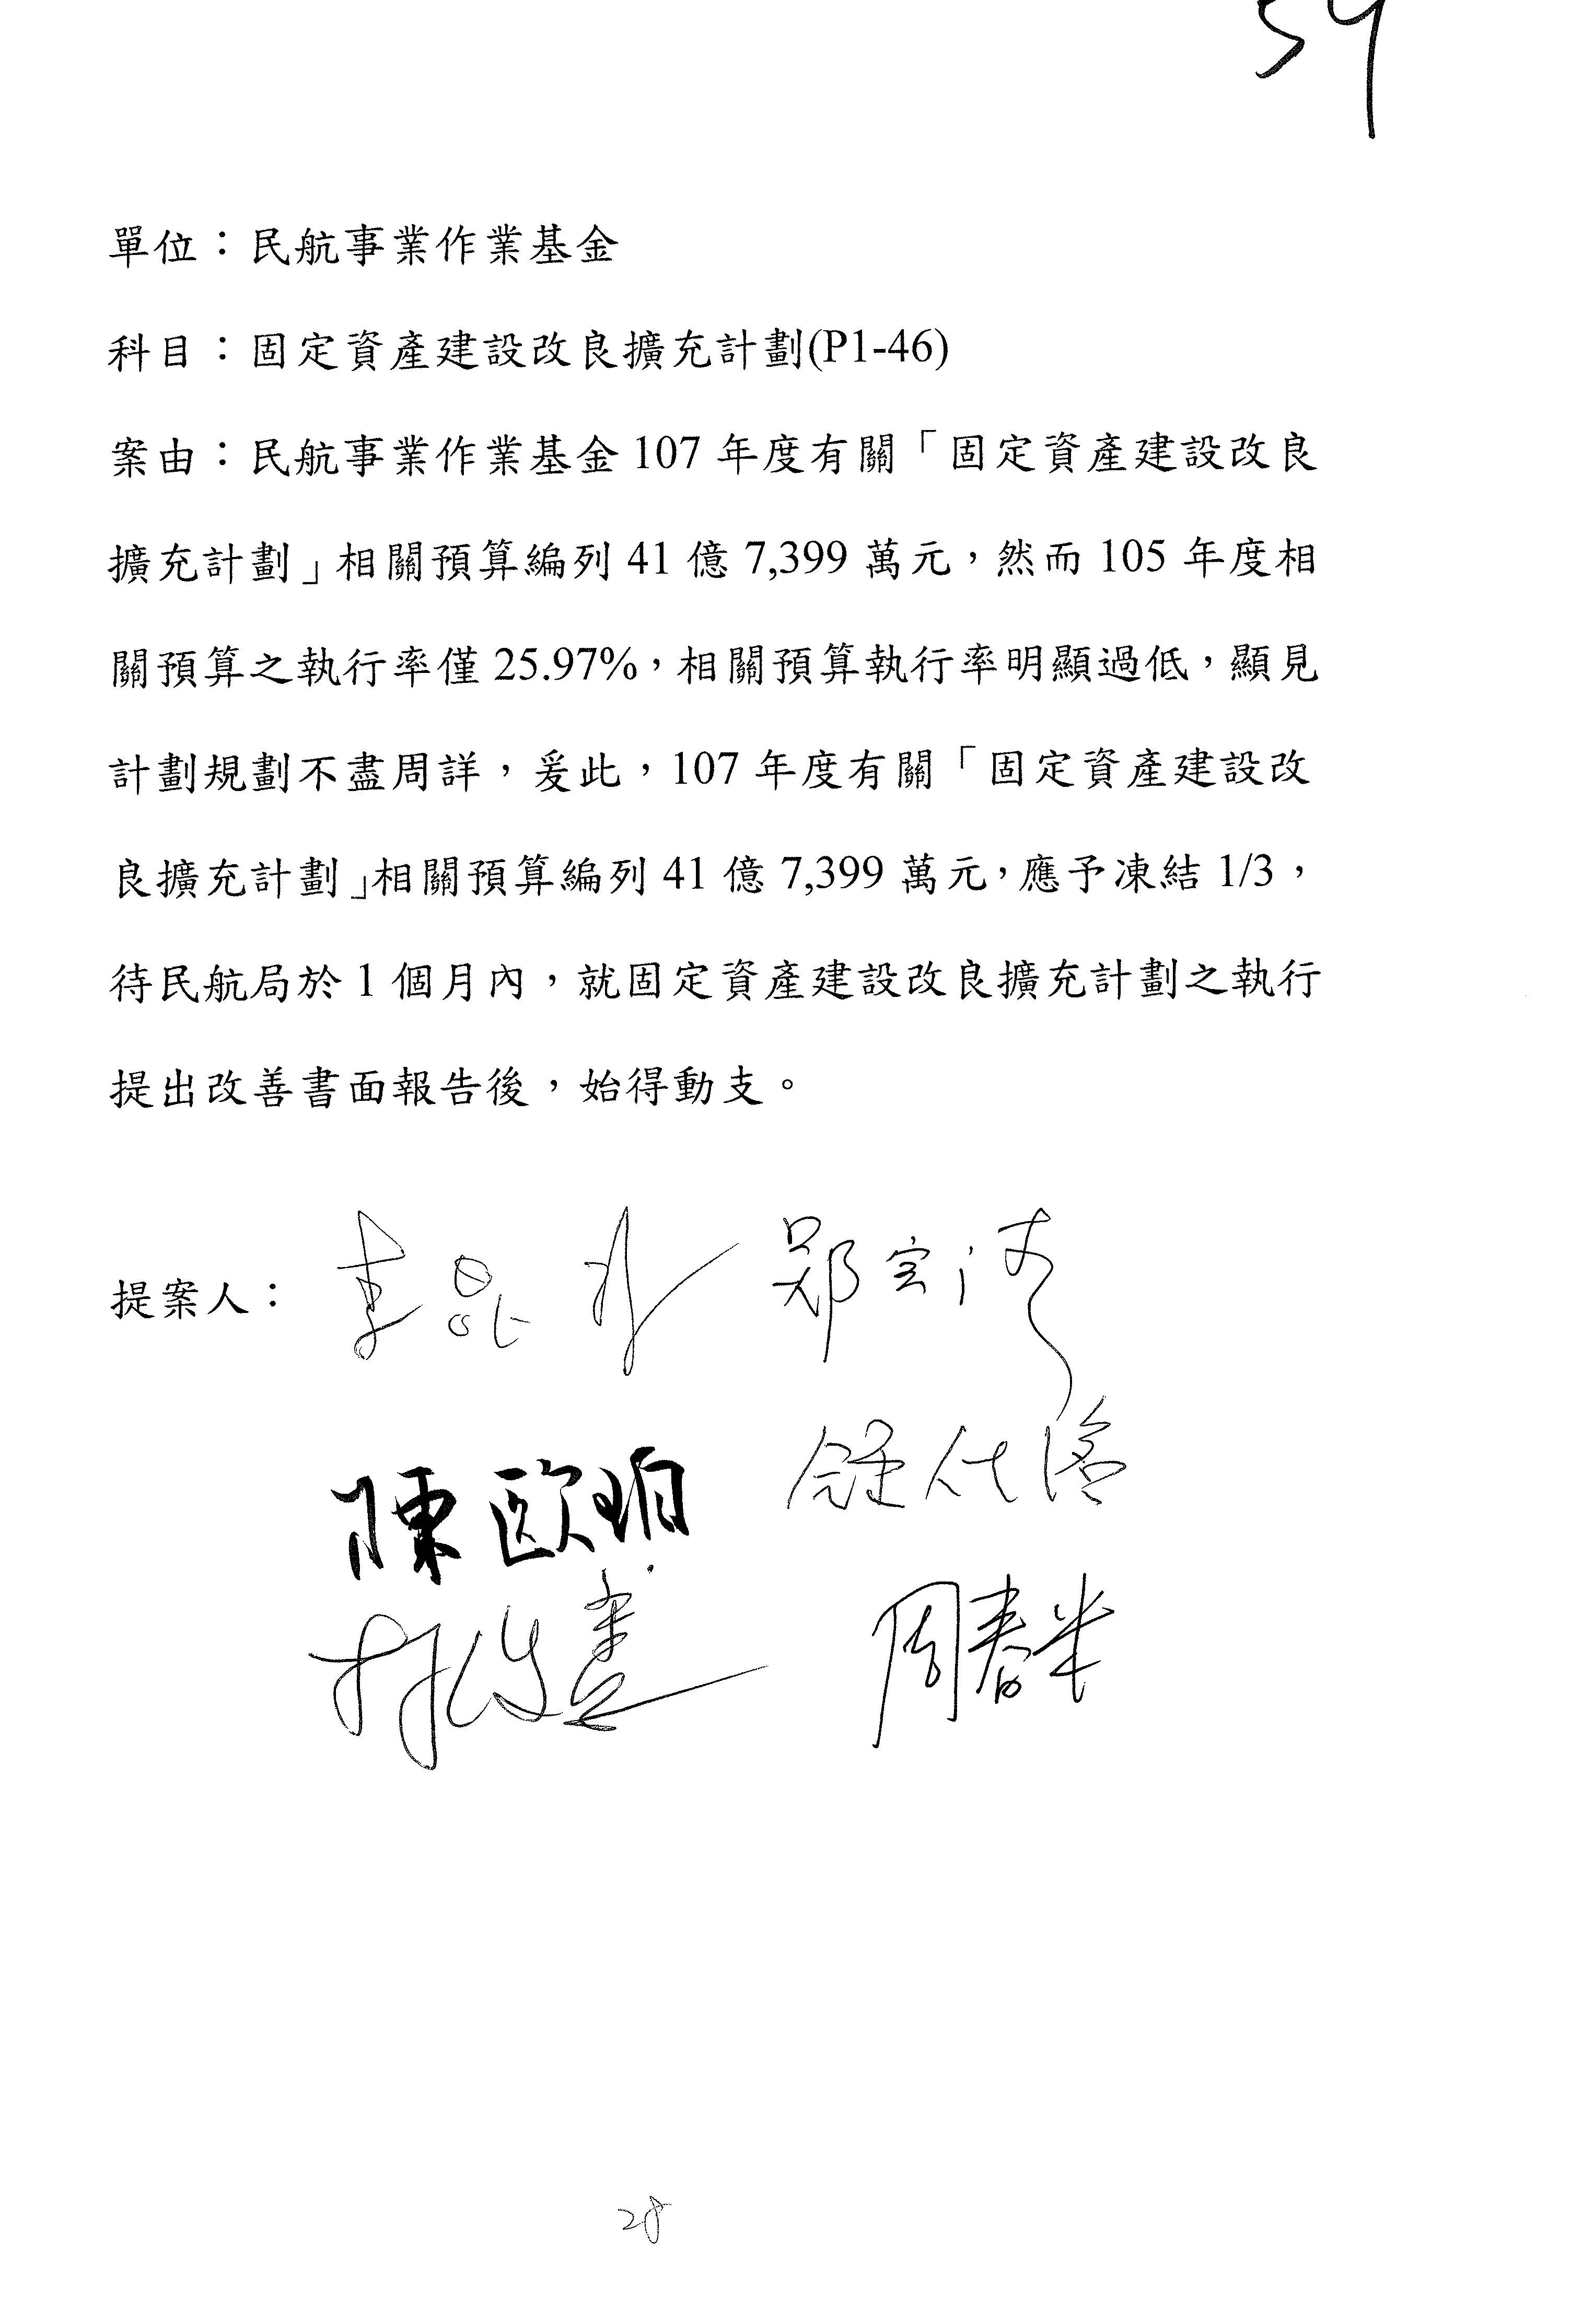 單位：民航事業作業基金
科目：固定資產建設改良擴充計劃(P1-46)
案由：民航事業作業基金 107 年度有關「固定資產建設改良
擴充計劃」相關預算編列 41 億 7,399 萬元，然而 105 年度相
關預算之執行率僅 25.97%，相關預算執行率明顯過低，顯見
計劃規劃不盡周詳，爰此，107 年度有關「固定資產建設改
良擴充計劃」相關預算編列 41 億 7,399 萬元，應予凍結 1/3，
待民航局於 1 個月內，就固定資產建設改良擴充計劃之執行
提出改善書面報告後，始得動支。
提案人：
陳歐珀
周春米
28